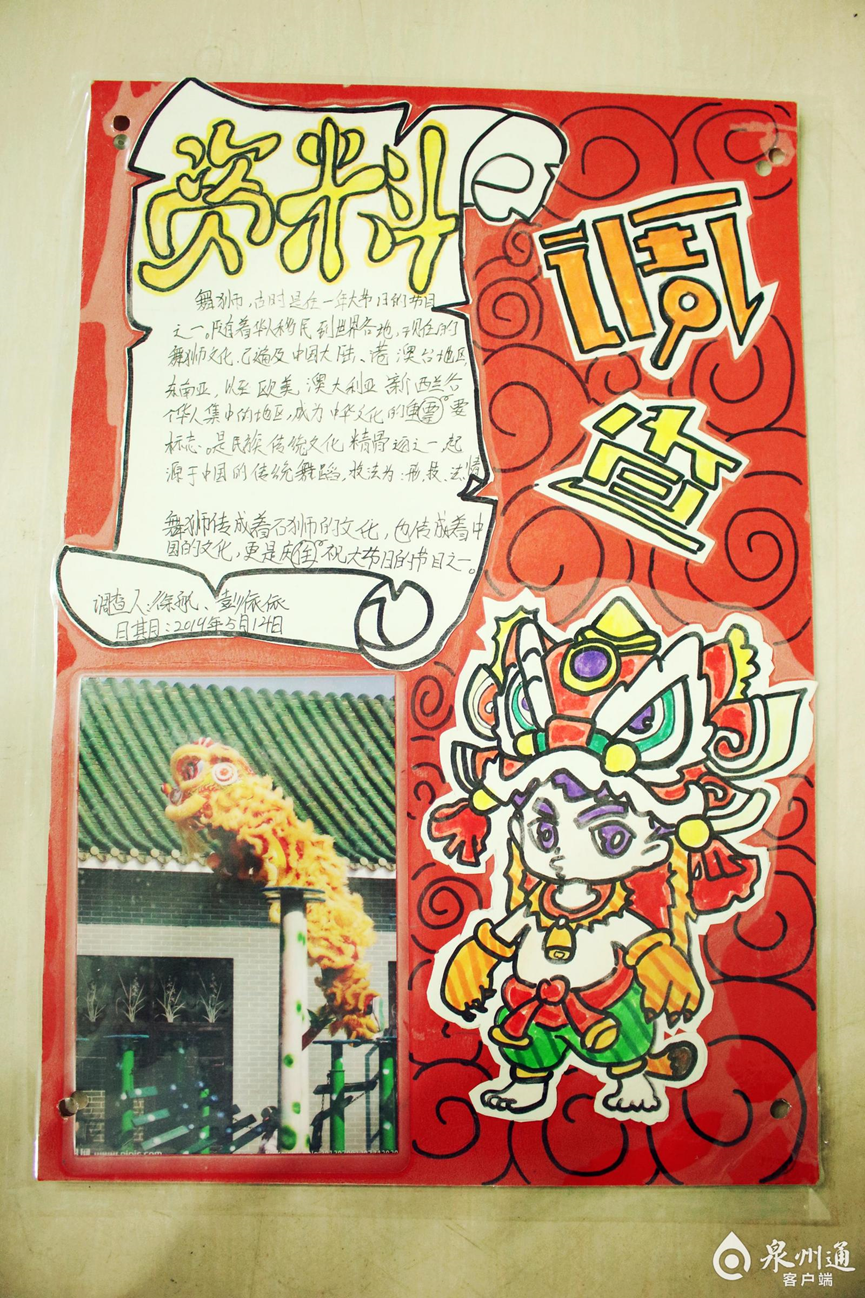 资料
调
查
舞狮，古时是在一年大节日的节目
之一。随着华人移民到世界各地，现在的
舞狮文化，已遍及中国大陆、港澳台地区
东南亚，以至欧美 澳大利亚 新西兰各
个华人集中的地区，成为中华文化的重要
标志。是民族传统文化精骨项之一，起
源于中国的传统舞蹈，妆法为：形、技、法、情
舞狮传成着石狮的文化，也传成着中
国的文化，更是庆祝大节日的节目之一。
调查人：徐、彭依依
日期：2019年5月14日
泉州通
客户端